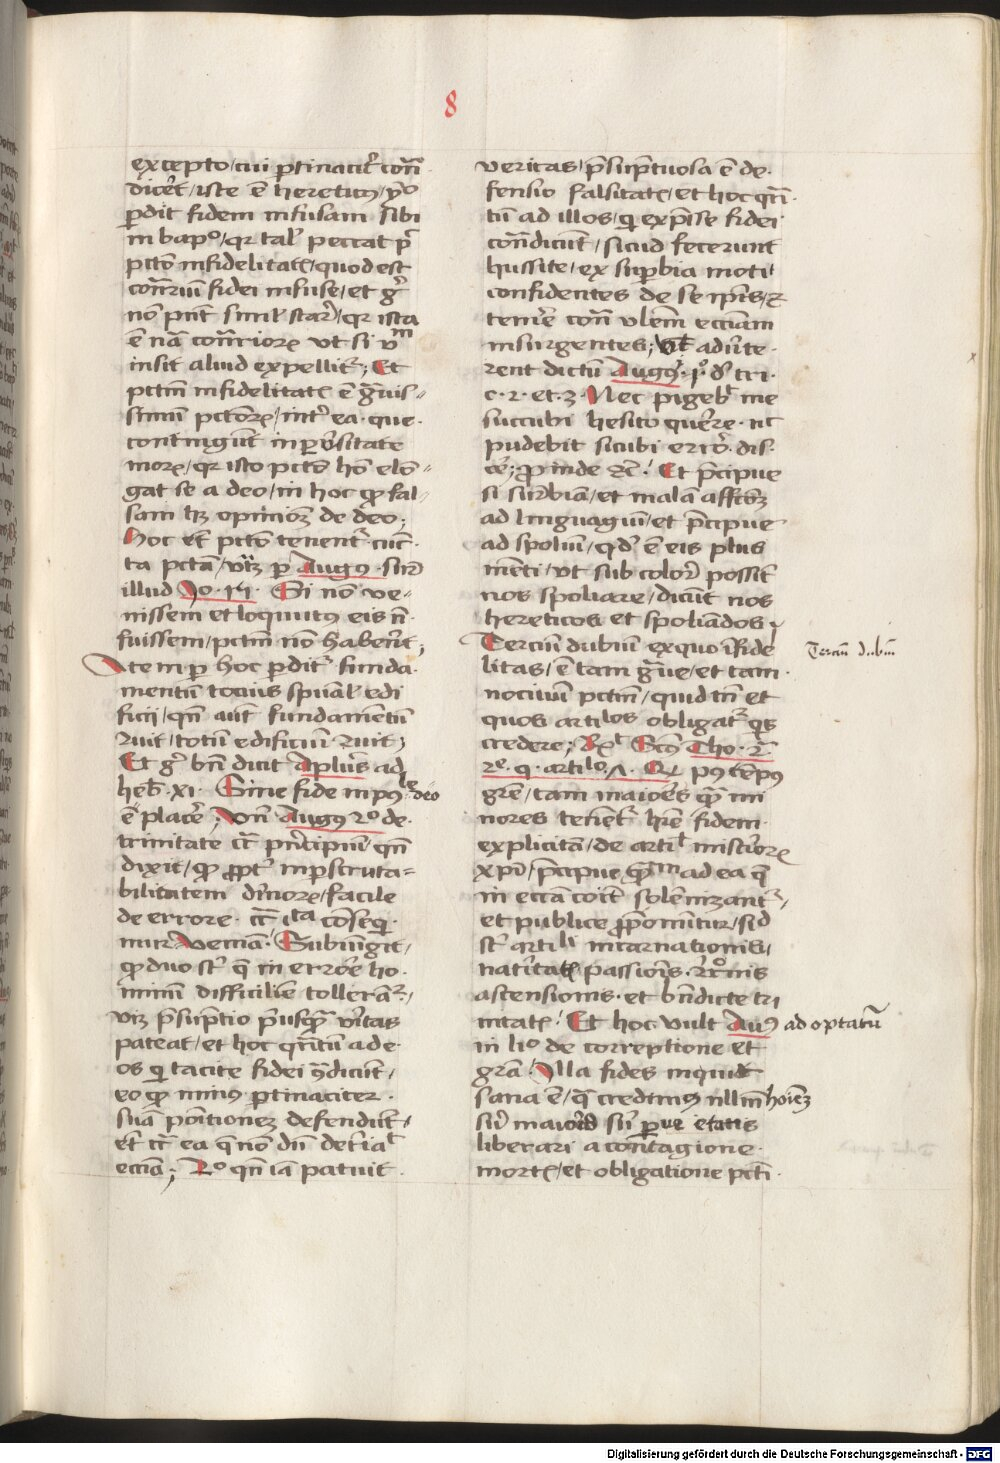 8
excepto / cui ꝑtinacit᷑ cont᷑a
dicet᷑ / iste ē hereticus / ꝟo
ꝑdit fidem infusam sibi
in bapº / qr talʼ peccat p̄
pctō infidelitatꝭ / quod est
cōt᷑riū fidei infuse / et gͥ
nō pn̄t simul star̄ / qr ista
ē nā cōt᷑rioꝝ vt si vnͫ
insit aliud expellitͬ ; Et
pctm̄ infidelitatꝭ ē g͛uis-
simū pctōꝝ / intͥ ea · que ·
contingūt in ꝑu̓sitate
moꝝ / qr isto pctō hō elō-
gat se a deo / in hoc ꝙ fal-
sam hꝫ opinionē de deo ;
hoc etͫ pctō tenentͬ cūc-
ta pctā / vtꝫ ꝑ Augꝰ · suꝑ
illud Jo · Si nō ve-
nissem et locutus eis n̄
fuissem / pctm̄ nō haberēt ;
Item ꝑ hoc ꝑditͬ funda-
mentū tocius spūalʼ edi
ficij / qn̄ aūt fundamētū
ruit / totū edificiū ruit ;
Et gͥ bn̄ dicit Aplūs ad
heb᷑ · xi · Sine fide impoˡᵉ deo
ē placē ; Vn̄ Augꝰ 2º de ·
trinitate cͣ pn̄cipiū / qn̄
dixit / ꝙ ꝓptͬ inꝑscruta-
bilitatem diu̓noꝝ / facile
de errore · cͣ itᵃ cōseq̄-
mur veniā · Subiūgit /
ꝙ duo sͭ q̄ in errore ho-
minū difficilīe tollerāͬ /
vꝫ p̄suptio pͥusꝙ̄ v̓itas
pateat / et hoc qn̄tū ad e-
os qͥ tacite fidei ꝯdicūt /
eo ꝙ minꝰ ꝑtinaciter ·
suā poītionē defendūt /
etͫ cͣ ea q̄ nō dū det̓iaͭ
ecciā ; 2º qn̄ iā patuit ·
veritas / p̄sūptuosa ē de-
fensio falsitatꝭ / et hoc qn̄-
tū ad illos / qͥ exp̄sse fidei
cōt᷑dicūt / sicud fecerunt
hussite / ex suꝑbia moti /
confidentes de se ip̄is / ⁊
temē cōt᷑ vl̄em ecciam
insurgentes ; Vt adu̓te-
rent dictū Augꝰ · pͦ · d᷑ tri ·
c · 2 · et · 3 · Nec pigebͭ me
sicubi hesito querere · nc
pudebit sicubi erro · dis-
cē ; proinde ⁊c̄ · Et p̄cipue
si suꝑbiā / et malā affcōꝫ
ad linguagiū / et p̄cipue
ad spoliū / qd᷑ ē eis plus
mēti / vt sub color̄ possīt
nos spoliare / dicūt nos
hereticos et spoliādos ·
Terciū dubiū ex quo īfide
litas / ē tam g͛ue / et tam ·
nociuū pctm̄ / quid tn̄ et
quos artiˡᵒˢ obligatͬ qͥs
credere ; Rͭ Scdō Tho · 2ª
2ᵉ · q · artiˡᵒ · Qꝫ pꝰ tēpꝰ
grē / tam maiores qͣ mi
nores tenētͬ hr̄e fidem ·
explicitā / de artiˡ mist̓ioꝝ
xpī / p̄cipue qͣntͫ ad ea q̄
in eccīa coīt solemizantͬ /
et publice ꝓponītur / sid
sͭ artiˡⁱ incarnationis /
natiuitatꝭ passionis · resurr̄ctōnis
ascensionis · et bn̄dicte tri
nitatꝭ · Et hoc vult Augꝰ ad optatū
in liº de correptione et
grā · Illa fides inquit
sana ē / qͣ credimꝰ nllm̄ hoīeꝫ
siu̓ maioris siu̓ parue etatis
liberari a contagione ·
mortꝭ / et obligatione pcti
Terciū dubiū
Digitalisierung gefördert durch die Deutsche Forschungsgemeinschaft - DFG